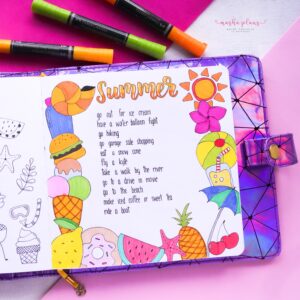 masha plans
Summer
go out for ice cream
have a water balloon fight
go hiking
go garage sale shopping
eat a snow cone
fly a kite
take a walk by the river
go to a drive in movie
go to the beach
make iced coffee or sweet tea
ride a boat